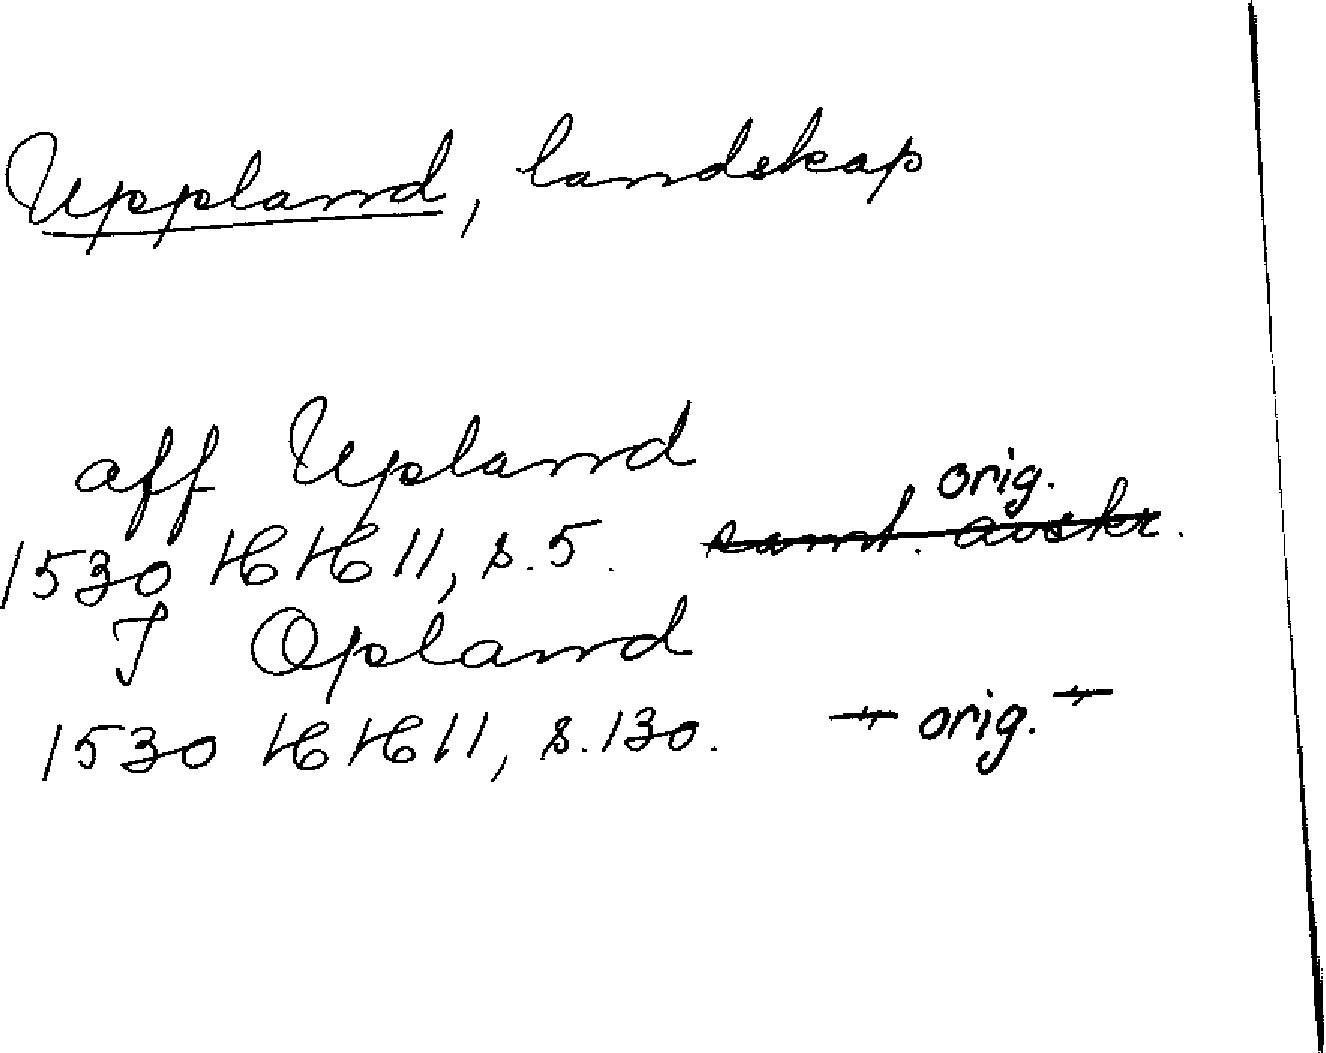 Uppland, landskap
aff Upland
orig.
1530 HH 11, s. 5. samt. avskr.
J Opland
1530 HH 11, s. 130. -"- orig. -"-